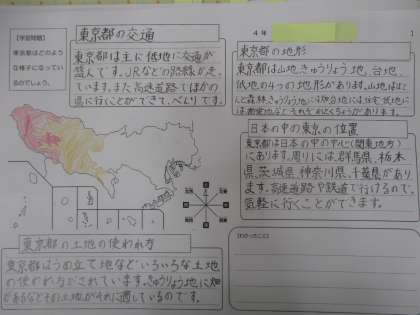 【学習問題】
東京都はどのよう
な様子になってい
るのでしょう。
東京都の交通
東京都は主に低地に交通が
盛んです。JRなどの路線が走っ
ています。また高速道路でほかの
県に行くことができて、べんりです。
4年
1
東京都の地形
東京都は山地、きゅうりょう地、台地、
低地の4つの地形があります。山地はほと
んど森林、きゅうりょう地には
日本の中の東京の位置
東京都は日本の中の中心(関東地方)
にあります。周りには、群馬県、栃木
県、茨城県、神奈川県、千葉県があり
ます。高速道路や鉄道で行けるので、
気軽に行くことができます。
東京都の土地の使われ方
東京都はうめ立て地などいろいろな土地
の使われ方がされています。きゅうりょう地に畑
があるなどその土地がそれに適しているのです。
【わかったこと】